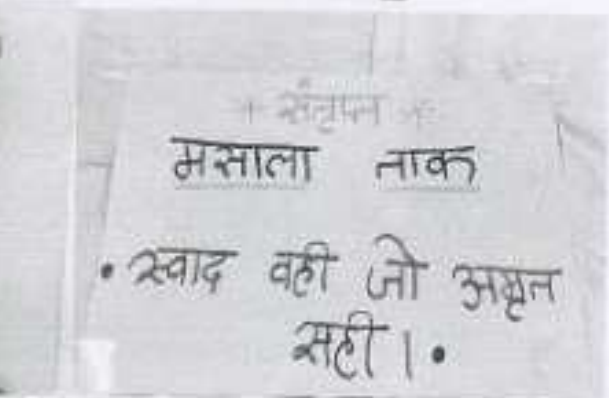 * संतृप्त *
मसाला ताक
• स्वाद वही जो अमृत
सही। •